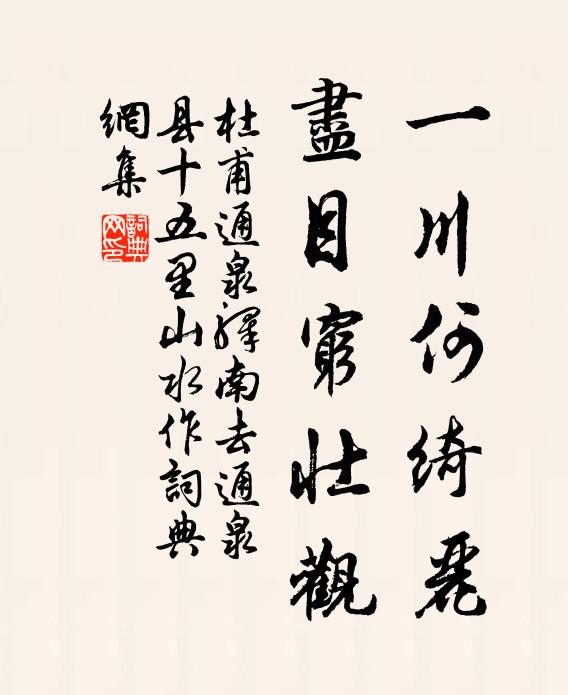 一川何綺麗
盡目窮壯觀
杜甫通泉驛南去通泉
县十五里山水作詞典
網集
詞典
网印